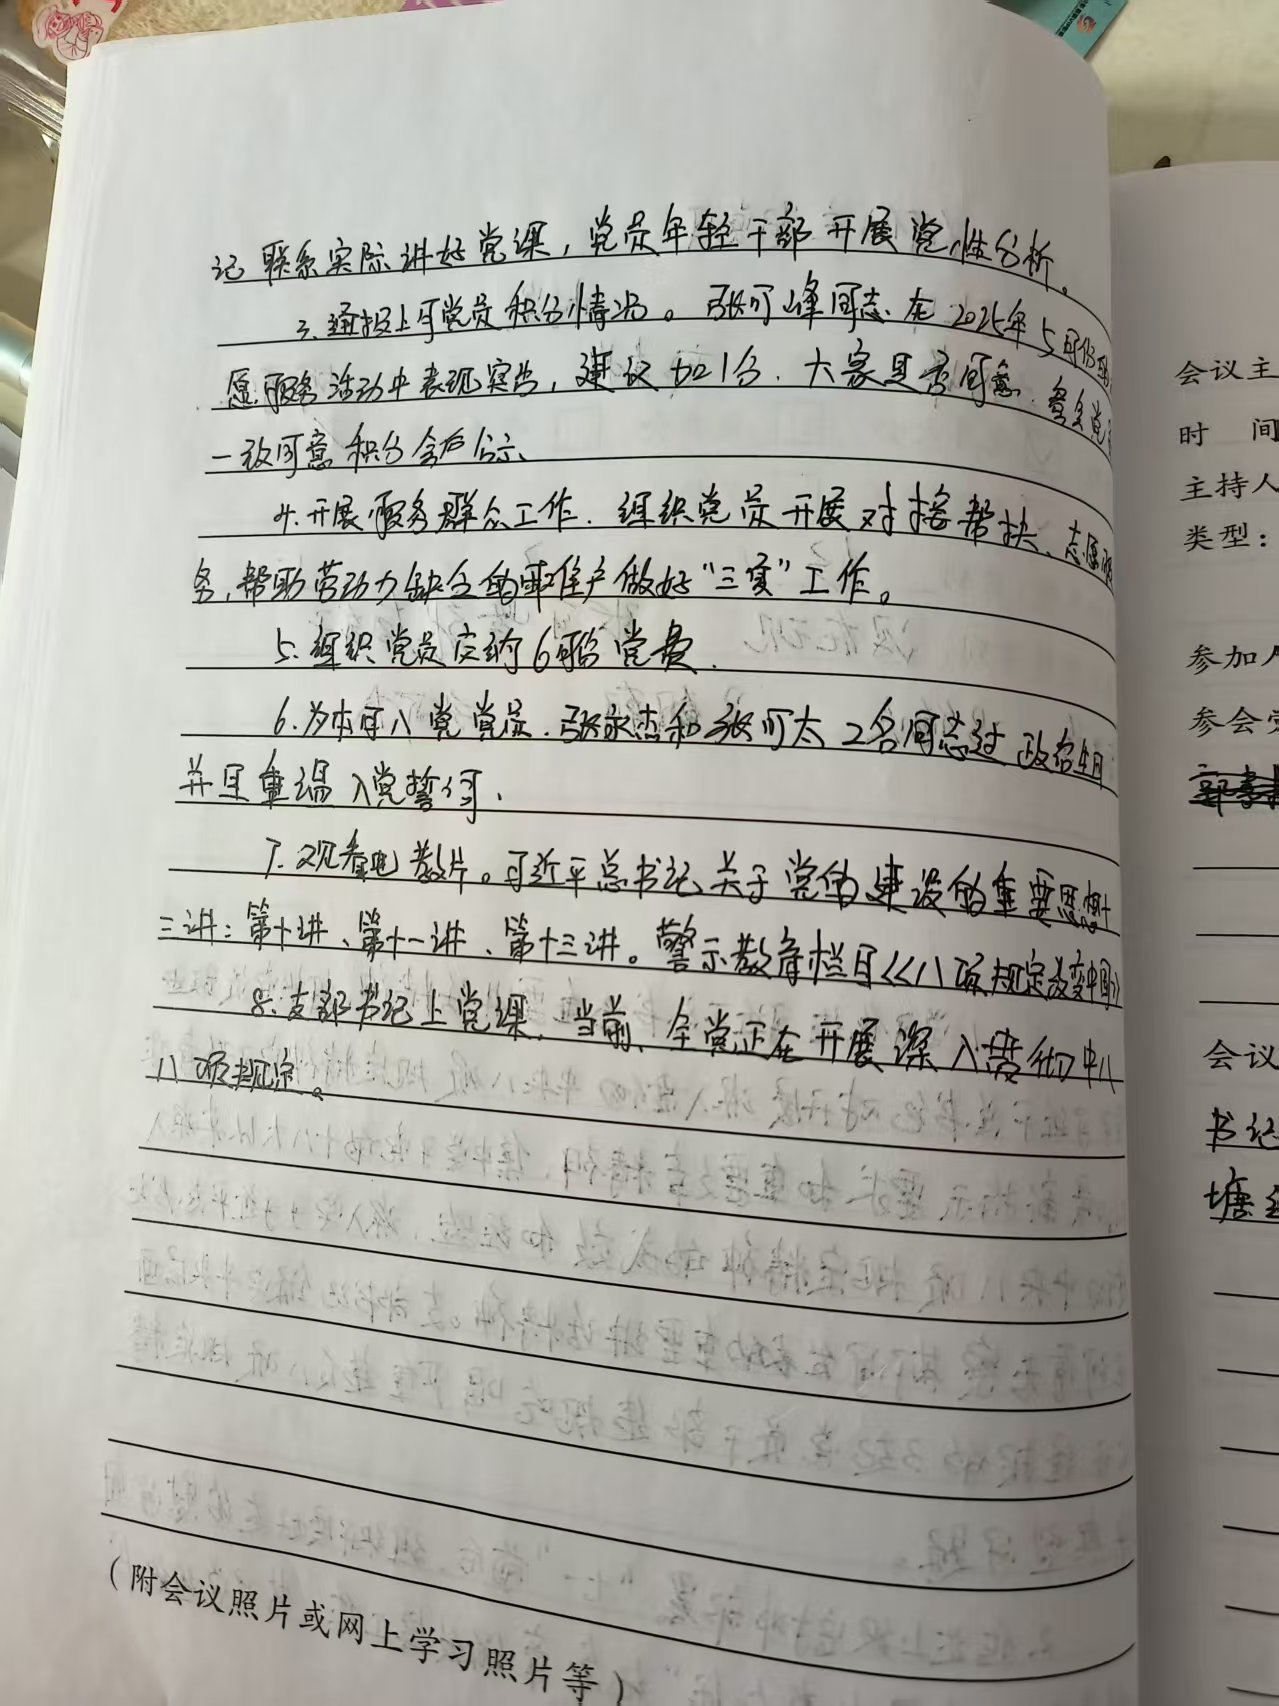 记联系实际讲好党课，党员年轻干部开展党性分析。
3.通报上月党员积分情况。张可峰同志在2025年5月份
愿服务活动中表现突出，建议加1分.大家是否同意.参会党
一致同意积分会后公示、
4.开展服务群众工作.组织党员开展对接帮扶、志愿服
务,帮助劳动力缺乏的困难户做好"三夏"工作。
5.组织党员交纳6月份党费.
6.为本月入党党员.张永杰和张可太2名同志过政治生日
并且重温入党誓词.
7.观看电教片。习近平总书记关于党的建设的重要思想十
三讲：第十讲、第十一讲、第十三讲。警示教育栏目《八项规定改变中国》
8.支部书记上党课，当前、全党正在开展深入贯彻中八
八项规定。
（附会议照片或网上学习照片等）
会议主
时 间
主持人
类型：
参加人
参会党
会议
书记
塘